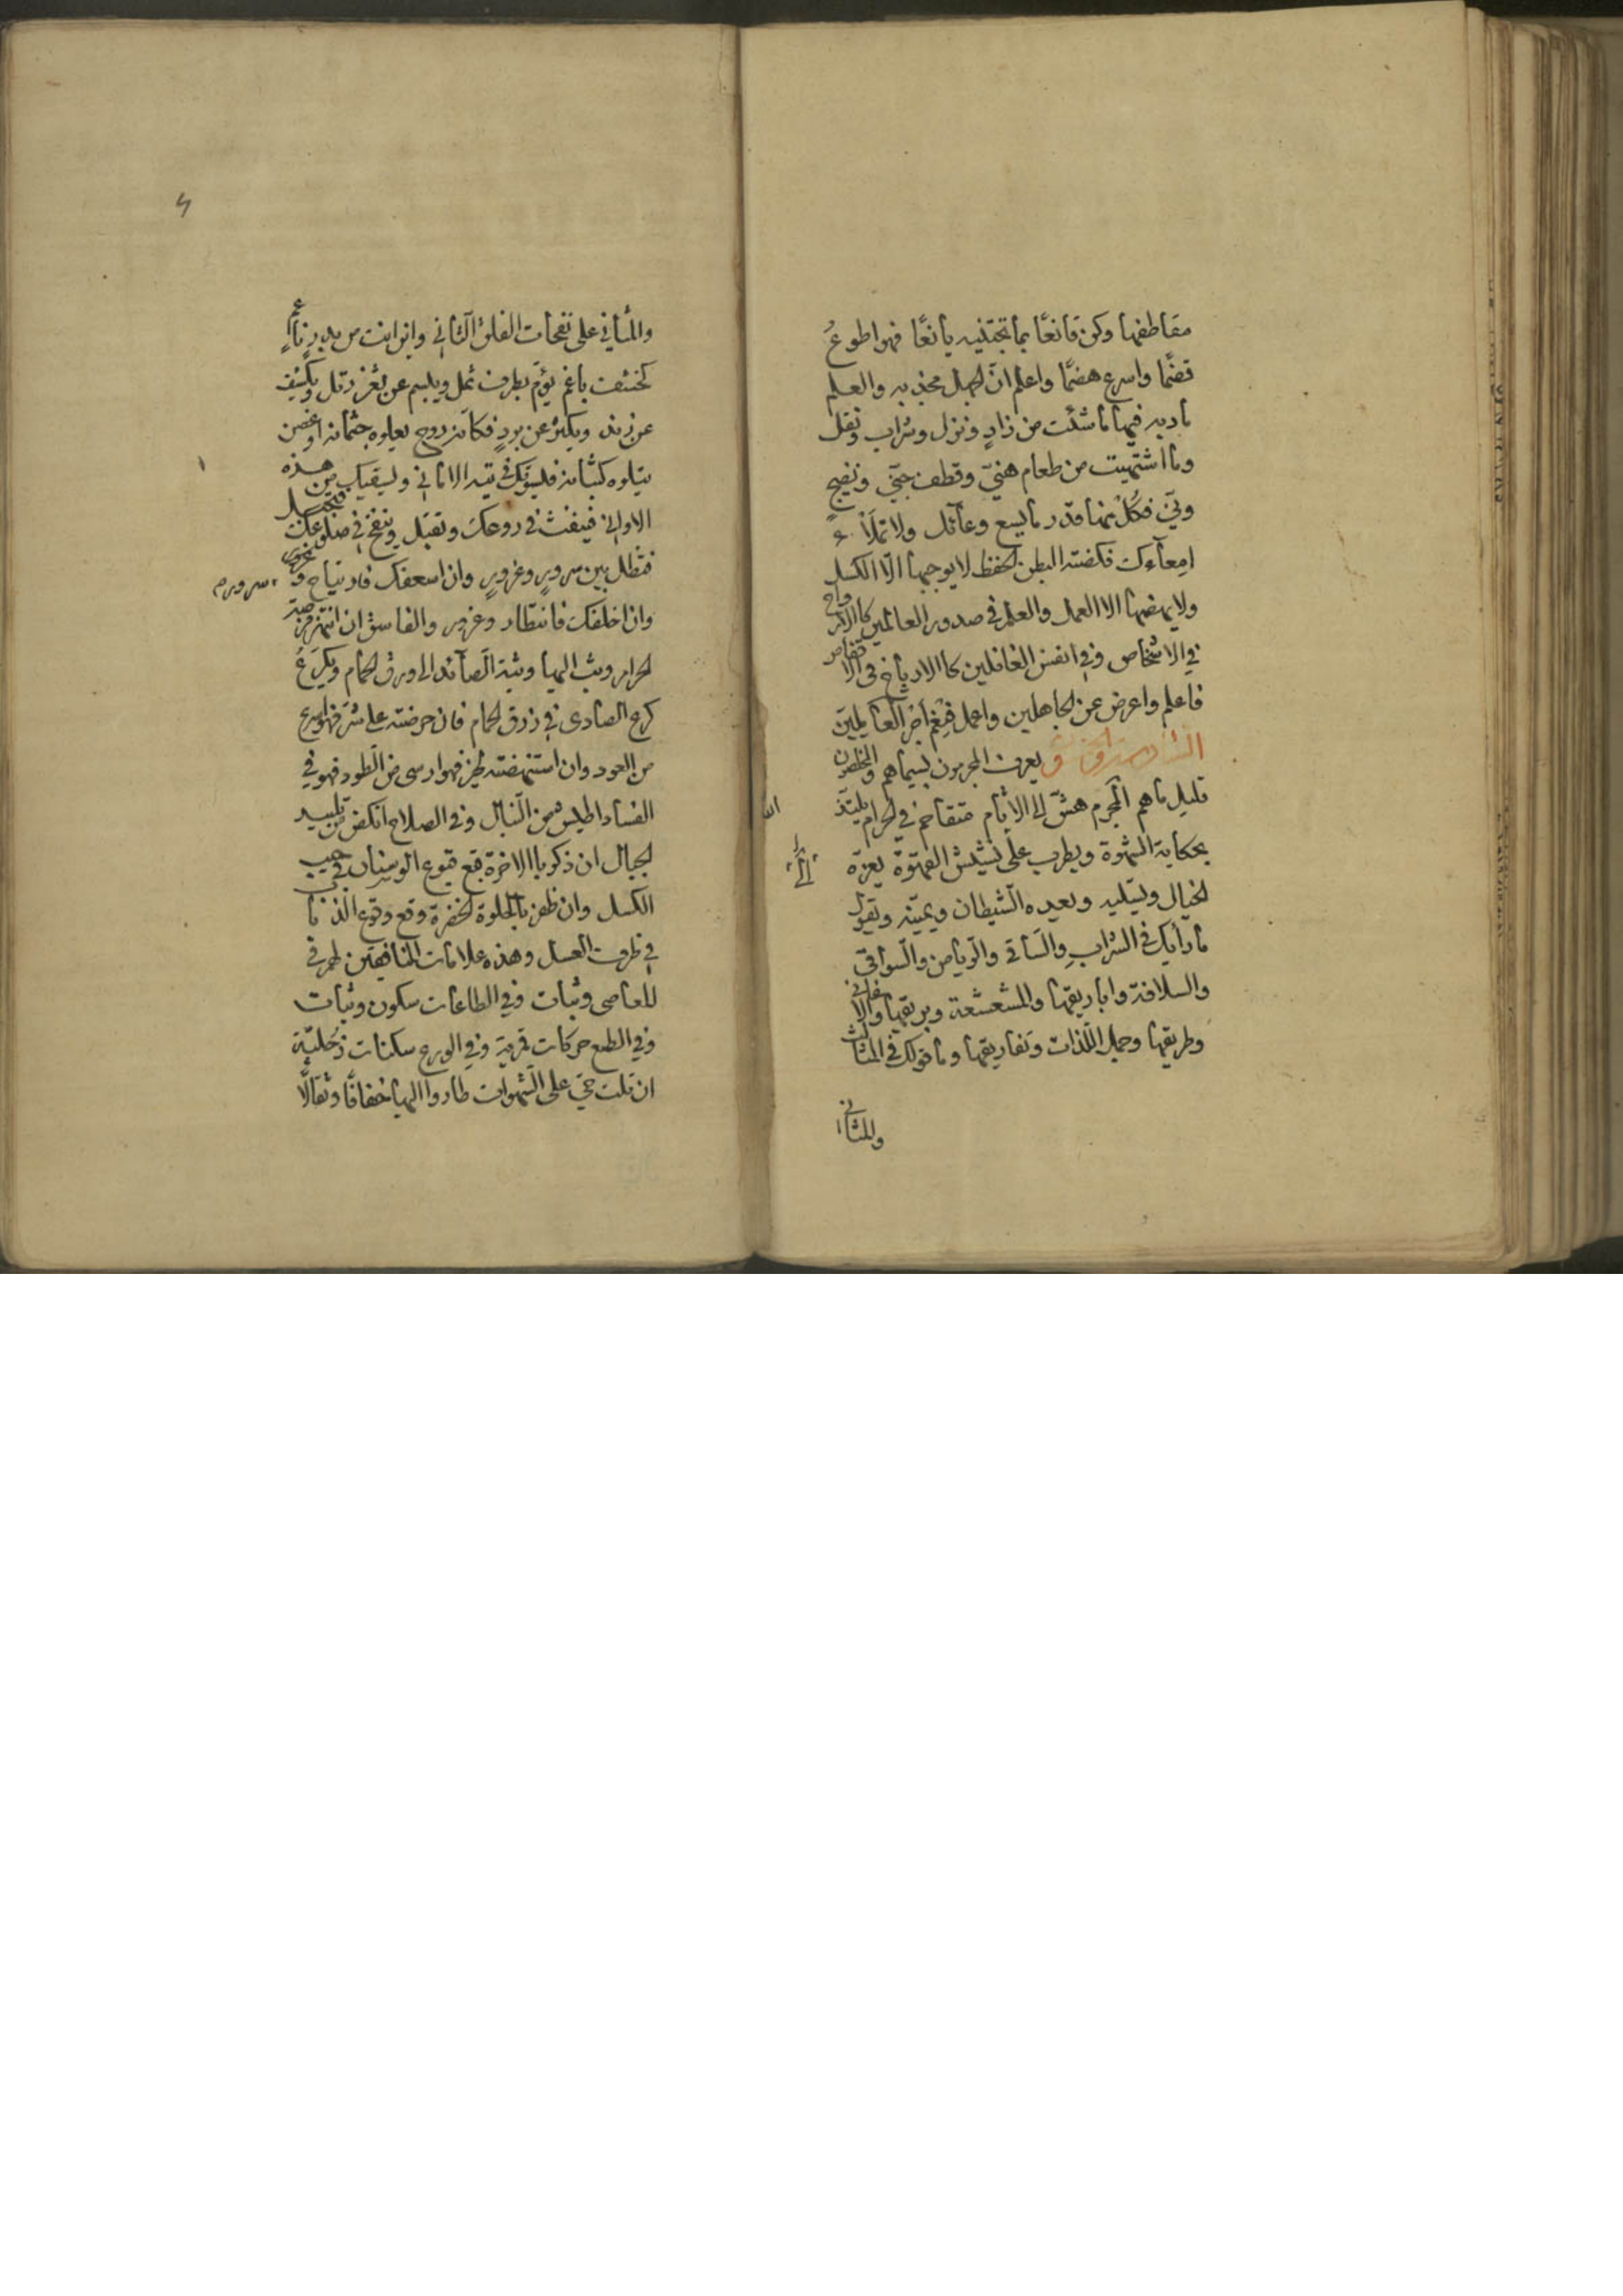 مقاطفها وكن قانعًا بما تجتنيه يانعًا فهو اطوعُ
قضمًا واسرع هضمًا واعلم انّ الجهل مجذبه والعلم
مأدبه فيها ما شئت من زادٍ ونزل وشراب ونقل
وما اشتهيت من طعام هنيّ وقطف جنيّ ونضيجٍ
ونيّ فكُلْ منها قدر ما يسع وعآئك ولا تملأ
امعآءك فكضة البطن الحفظ لا يوجبها الّا الكسل
ولا يهضمها الا العمل والعلم في صدور العالمين كالارواح
في الاشخاص وفي انفس الغافلين كالارياح في الاقفاص
فاعلم واعرض عن الجاهلين واعمل فنِعْمَ أجرُ العَامِلِينَ
يعرف المجرمون بسيماهم والمخلصون
قليل ما هم المجرم هشّ الى الاثام متقاحم في الحرام يلتذّ
بحكاية الشهوة ويطرب على نشيش القهوة يعزّه
الخيال ويسليه ويعده الشيطان ويمنيه ويقول
ما رأيك في الشرابِ والساقي والرياض والسواقي
والسلافة واباريقها والمشعشعة وبريقها والاغاني
وطريقها وحمل اللذات وتفاريقها وما قولك في المثالث
والمثاني
والمثاني على نفحات الفلق الثاني واين انت من بدر
كخشف باغم يؤم بطرف ثمل ويبسم عن ثغر رتل ويكشف
عن زند ويكشر عن بردٍ فكانه روح يعلوه جثمانه او غصن
يتلوه كثبانه فليسوّنك في تيه الاماني وليسقينك من هذه
الاواني فينفث في روعك وتقبل وينفخ في ضلوعك فتحمل
فتظل بين سرورٍ وغرورٍ وان اسعفك فارتياح و
سرورم
وان اخلفك فانتظار وغرور والفاسق ان انتهز فرصة
الحرام وثب اليها وثبة الصائد الى ورق الحمام ويكرعُ
كرع الصادى في زرق الحمام فان حرضته على شرّ فهو اسرع
من العود وان استنهضته لخير فهو ارسى من الطود فهو في
الفساد اطيش من النبال وفي الصلاح انكص من تلبيد
الجبال ان ذكر بالاخرة قبع قبوع الوسنان في جيب
الكسل وان ظفر بالحلوة الخضرة وقع وقوع الذباب
في ظرف العسل وهذه علامات المنافقين لهم في
المعاصى وثبات وفي الطاعات سكون وثبات
وفي الطمع حركات قمرية وفي الورع سكنات زُحَليّة
ان قلت حيّ على الشهوات طاروا اليها خفافًا وثقالًا